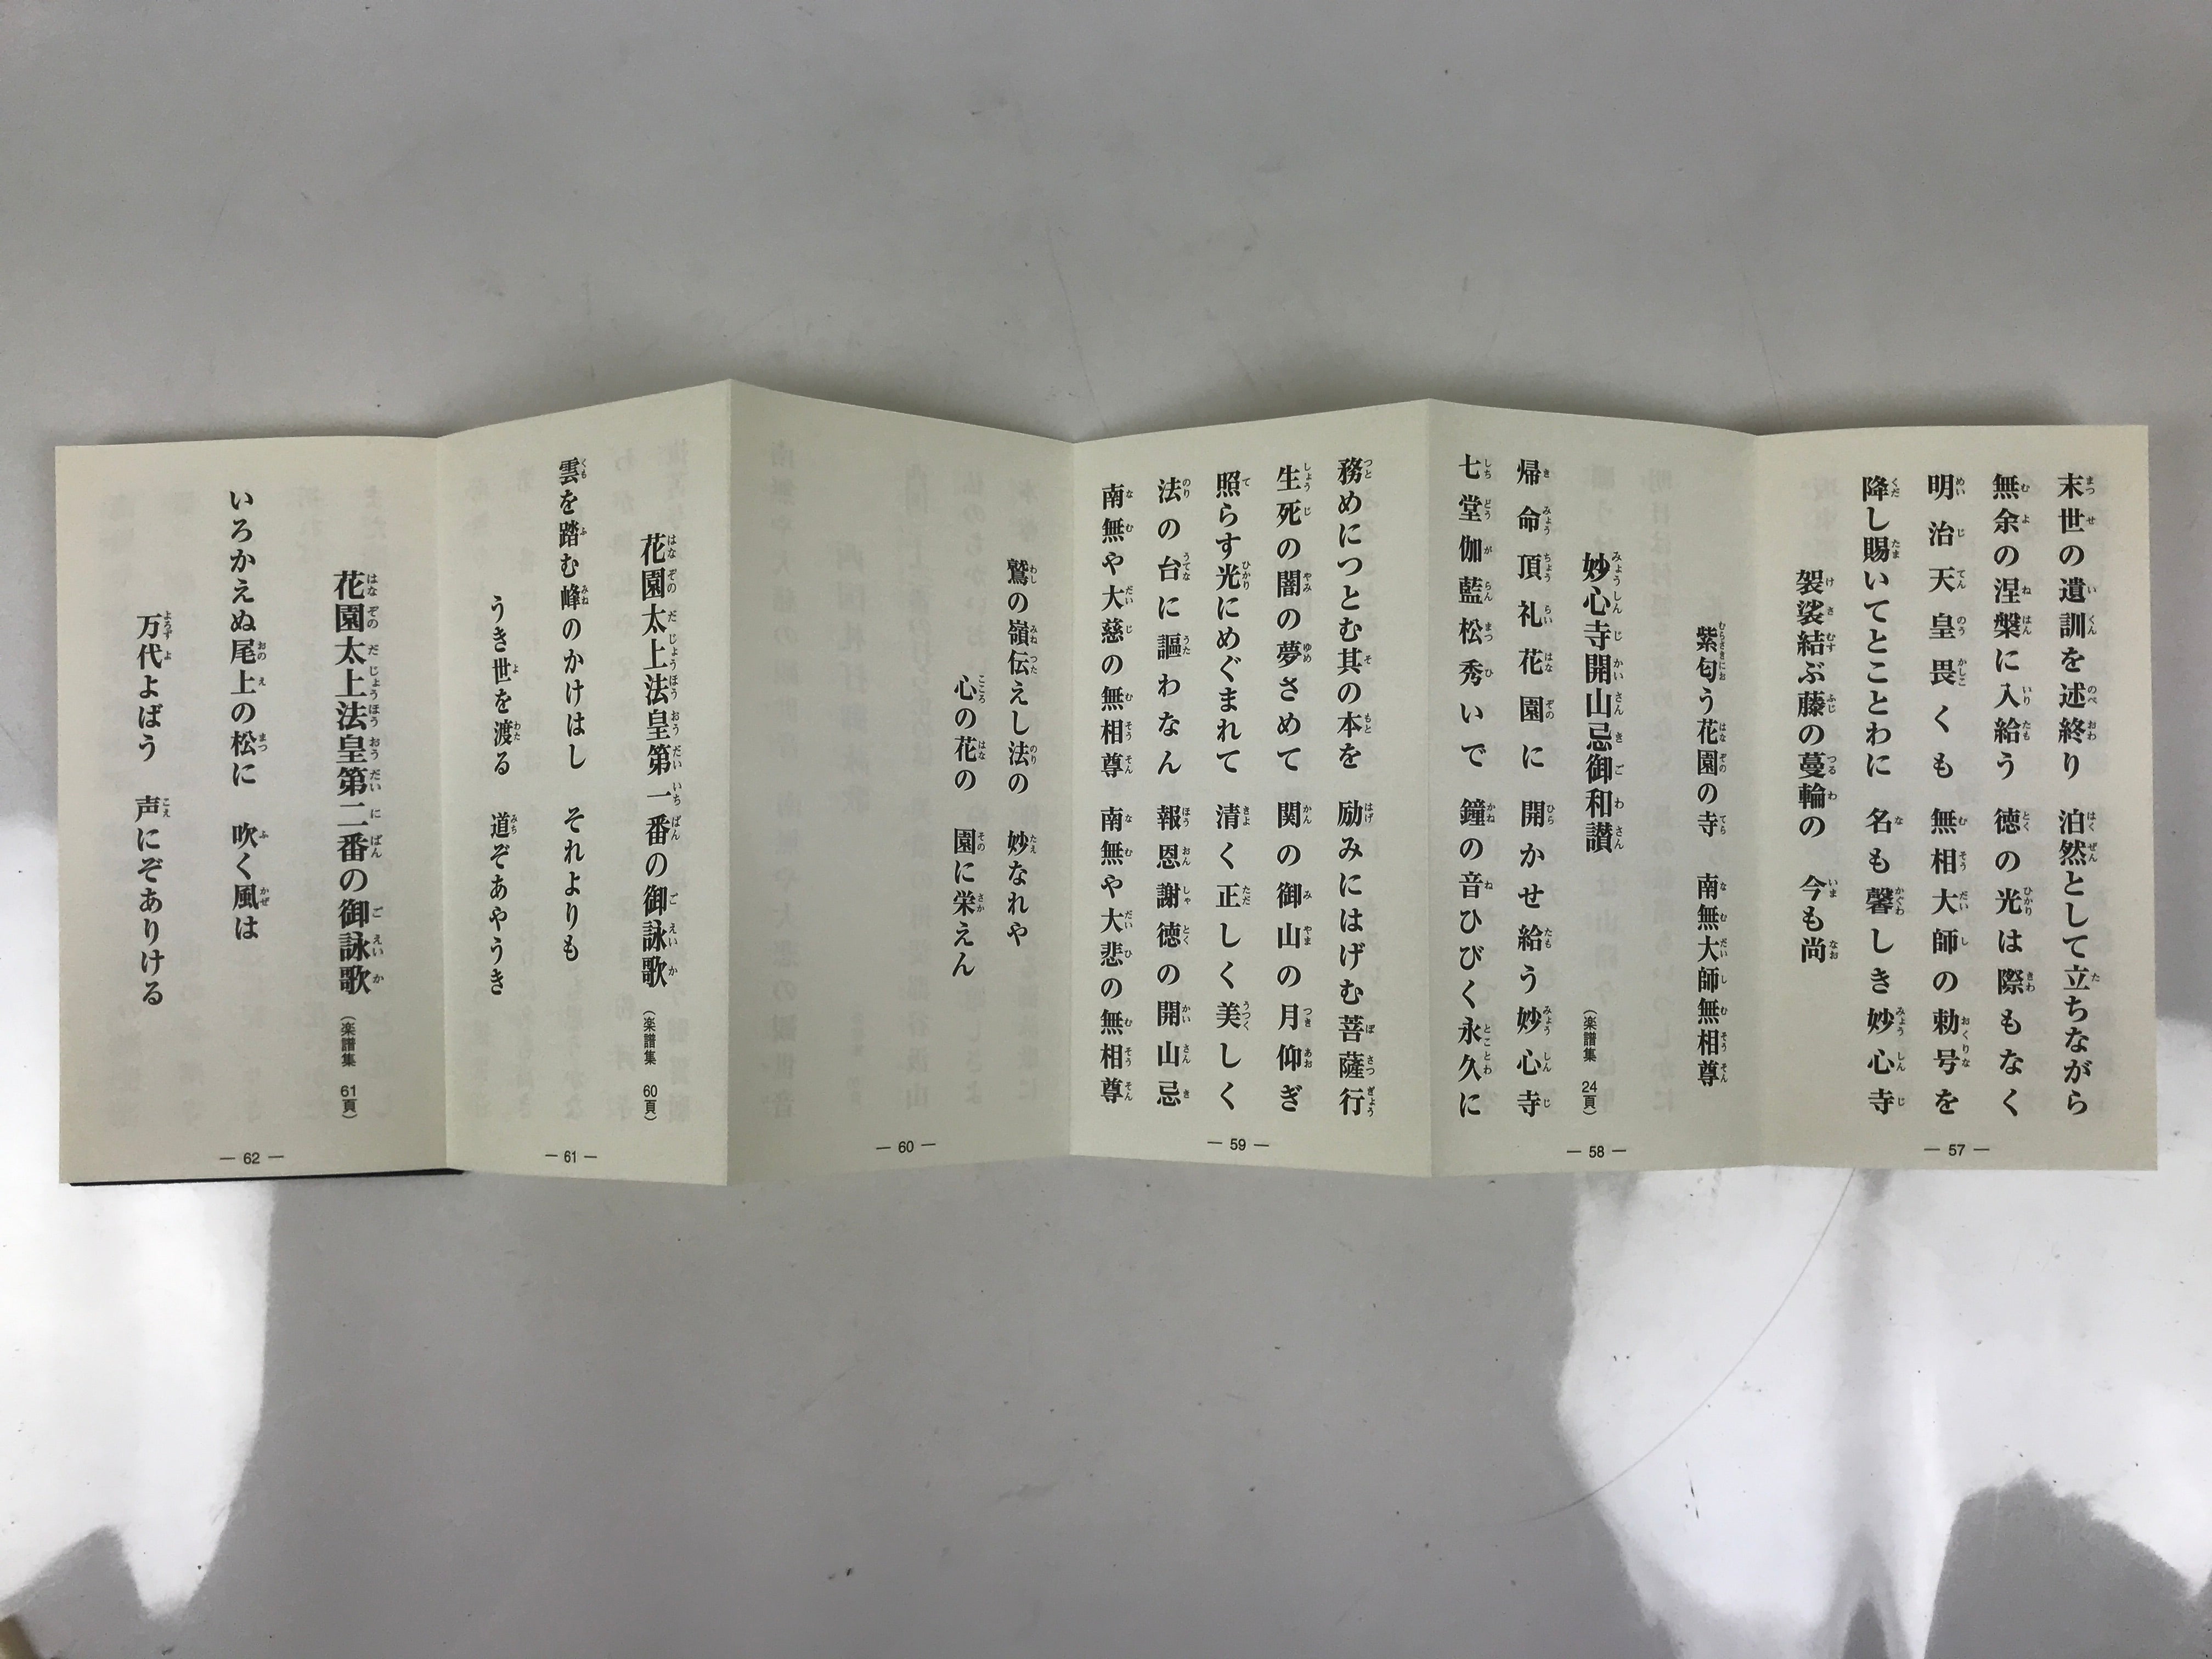 末世の遺訓を述終り　泊然として立ちながら
無余の涅槃に入給う　徳の光は際もなく
明治天皇畏くも　無相大師の勅号を
降し賜いてとことわに　名も馨しき妙心寺
袈裟結ぶ藤の蔓輪の　今も尚
— 57 —
紫匂う花園の寺　南無大師無相尊
妙心寺開山忌御和讃（楽譜集　24頁）
帰命頂礼花園に　開かせ給う妙心寺
七堂伽藍松秀いで　鐘の音ひびく永久に
— 58 —
務めにつとむ其の本を　励みにはげむ菩薩行
生死の闇の夢さめて　関の御山の月仰ぎ
照らす光にめぐまれて　清く正しく美しく
法の台に謳わなん　報恩謝徳の開山忌
南無や大慈の無相尊　南無や大悲の無相尊
— 59 —
鷲の嶺伝えし法の　妙なれや
心の花の　園に栄えん
— 60 —
花園太上法皇第一番の御詠歌（楽譜集　60頁）
雲を踏む峰のかけはし　それよりも
うき世を渡る　道ぞあやうき
— 61 —
花園太上法皇第二番の御詠歌（楽譜集　61頁）
いろかえぬ尾上の松に　吹く風は
万代よばう　声にぞありける
— 62 —